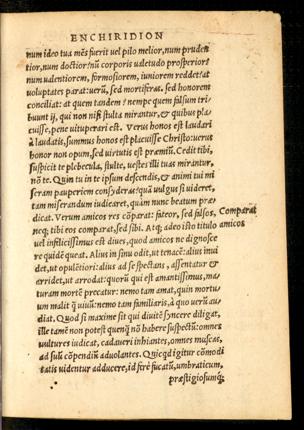 ENCHIRIDION
num ideo tua mẽs fuerit vel pilo melior, num pruden
tior, num doctior? nũ corporis valetudo prosperior?
num valentiorem, formosiorem, iuniorem reddet? at
voluptates parat: verũ, sed mortiferas. sed honorem
conciliat: at quem tandem? nempe quem falsum tri-
buunt ij, qui non nisi stulta mirantur, & quibus pla-
cuisse, pene vituperari est. Verus honos est laudari
à laudatis, summus honos est placuisse Christo: verus
honor non opum, sed virtutis est præmiũ. Cedit tibi,
suspicit te plebecula, stulte, vestes illi tuas mirantur,
nõ te. Quin tu in te ipsum defcendis, & animi tui mi
seram pauperiem consyderas? quã vulgus si videret,
tam miserandum iudicaret, quàm nunc beatum præ
dicat. Verum amicos res cõparat: fateor, sed falsos, Comparat
necq; tibi eos comparat, sed sibi. Atq; adeo isto titulo amicos
vel infelicissimus est diues, quod amicos ne dignosce
re quidẽ queat. Alius in sinu odit, ut tenacẽ: alius inui
det, ut opulẽtiori: alius ad se spectans, assentatur &
arridet, ut arrodat: quorũ qui est amantissimus, ma-
turam mortẽ precatur: nemo tam amat, quin mortuũ
malit quàm viuũ: nemo tam familiaris, à quo verũ au-
diat. Quod si maxime sit qui diuitẽ syncere diligat,
ille tamẽ non potest quenq̃ nõ habere suspectũ: omnes
vultures iudicat, cadaueri inhiantes, omnes muscas,
ad suũ cõpendiũ aduolantes. Quicqd igitur cõmodi
tatis videntur adducere, id ferẽ fucatũ, umbraticum,
præstigiosumq́;